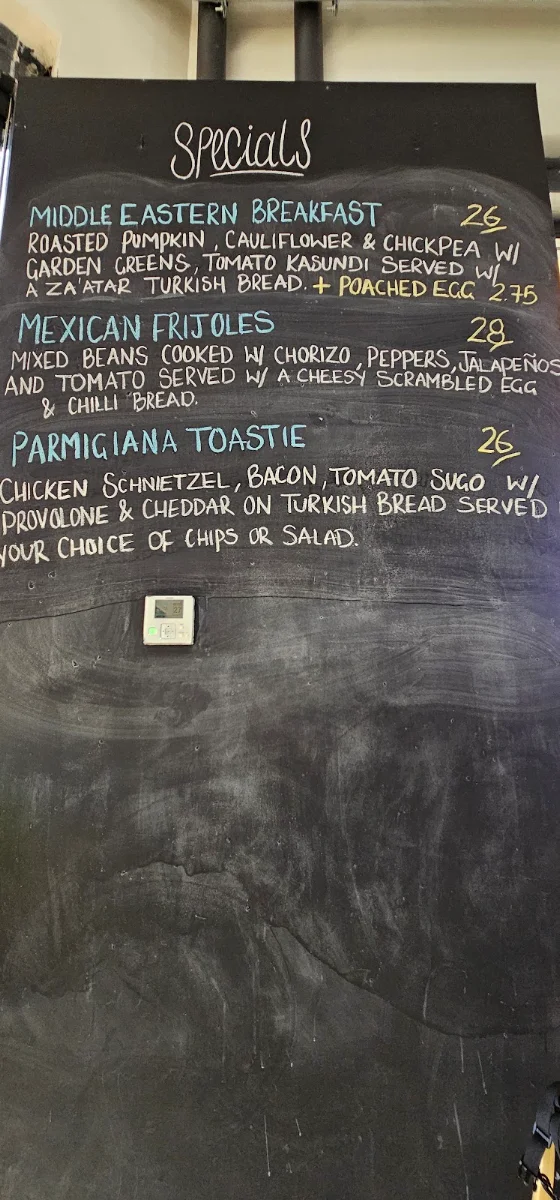 SPECIALS
MIDDLE EASTERN BREAKFAST 26
ROASTED PUMPKIN, CAULIFLOWER & CHICKPEA W/
GARDEN GREENS, TOMATO KASUNDI SERVED W/
A ZA'ATAR TURKISH BREAD. + POACHED EGG 2.75
MEXICAN FRIJOLES 28
MIXED BEANS COOKED W/ CHORIZO, PEPPERS, JALAPEÑOS
AND TOMATO SERVED W/ A CHEESY SCRAMBLED EGG
& CHILLI BREAD.
PARMIGIANA TOASTIE 26
CHICKEN SCHNIETZEL, BACON, TOMATO SUGO W/
PROVOLONE & CHEDDAR ON TURKISH BREAD SERVED
YOUR CHOICE OF CHIPS OR SALAD.